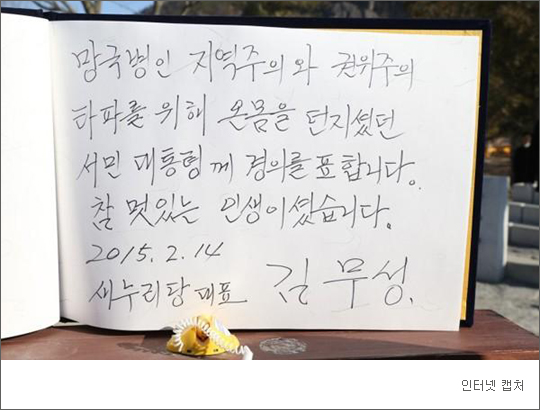 망국병인 지역주의와 권위주의
타파를 위해 온몸을 던지셨던
서민 대통령께 경의를 표합니다.
참 멋있는 인생이셨습니다.
2015. 2. 14
새누리당 대표 김무성.
인터넷 캡처